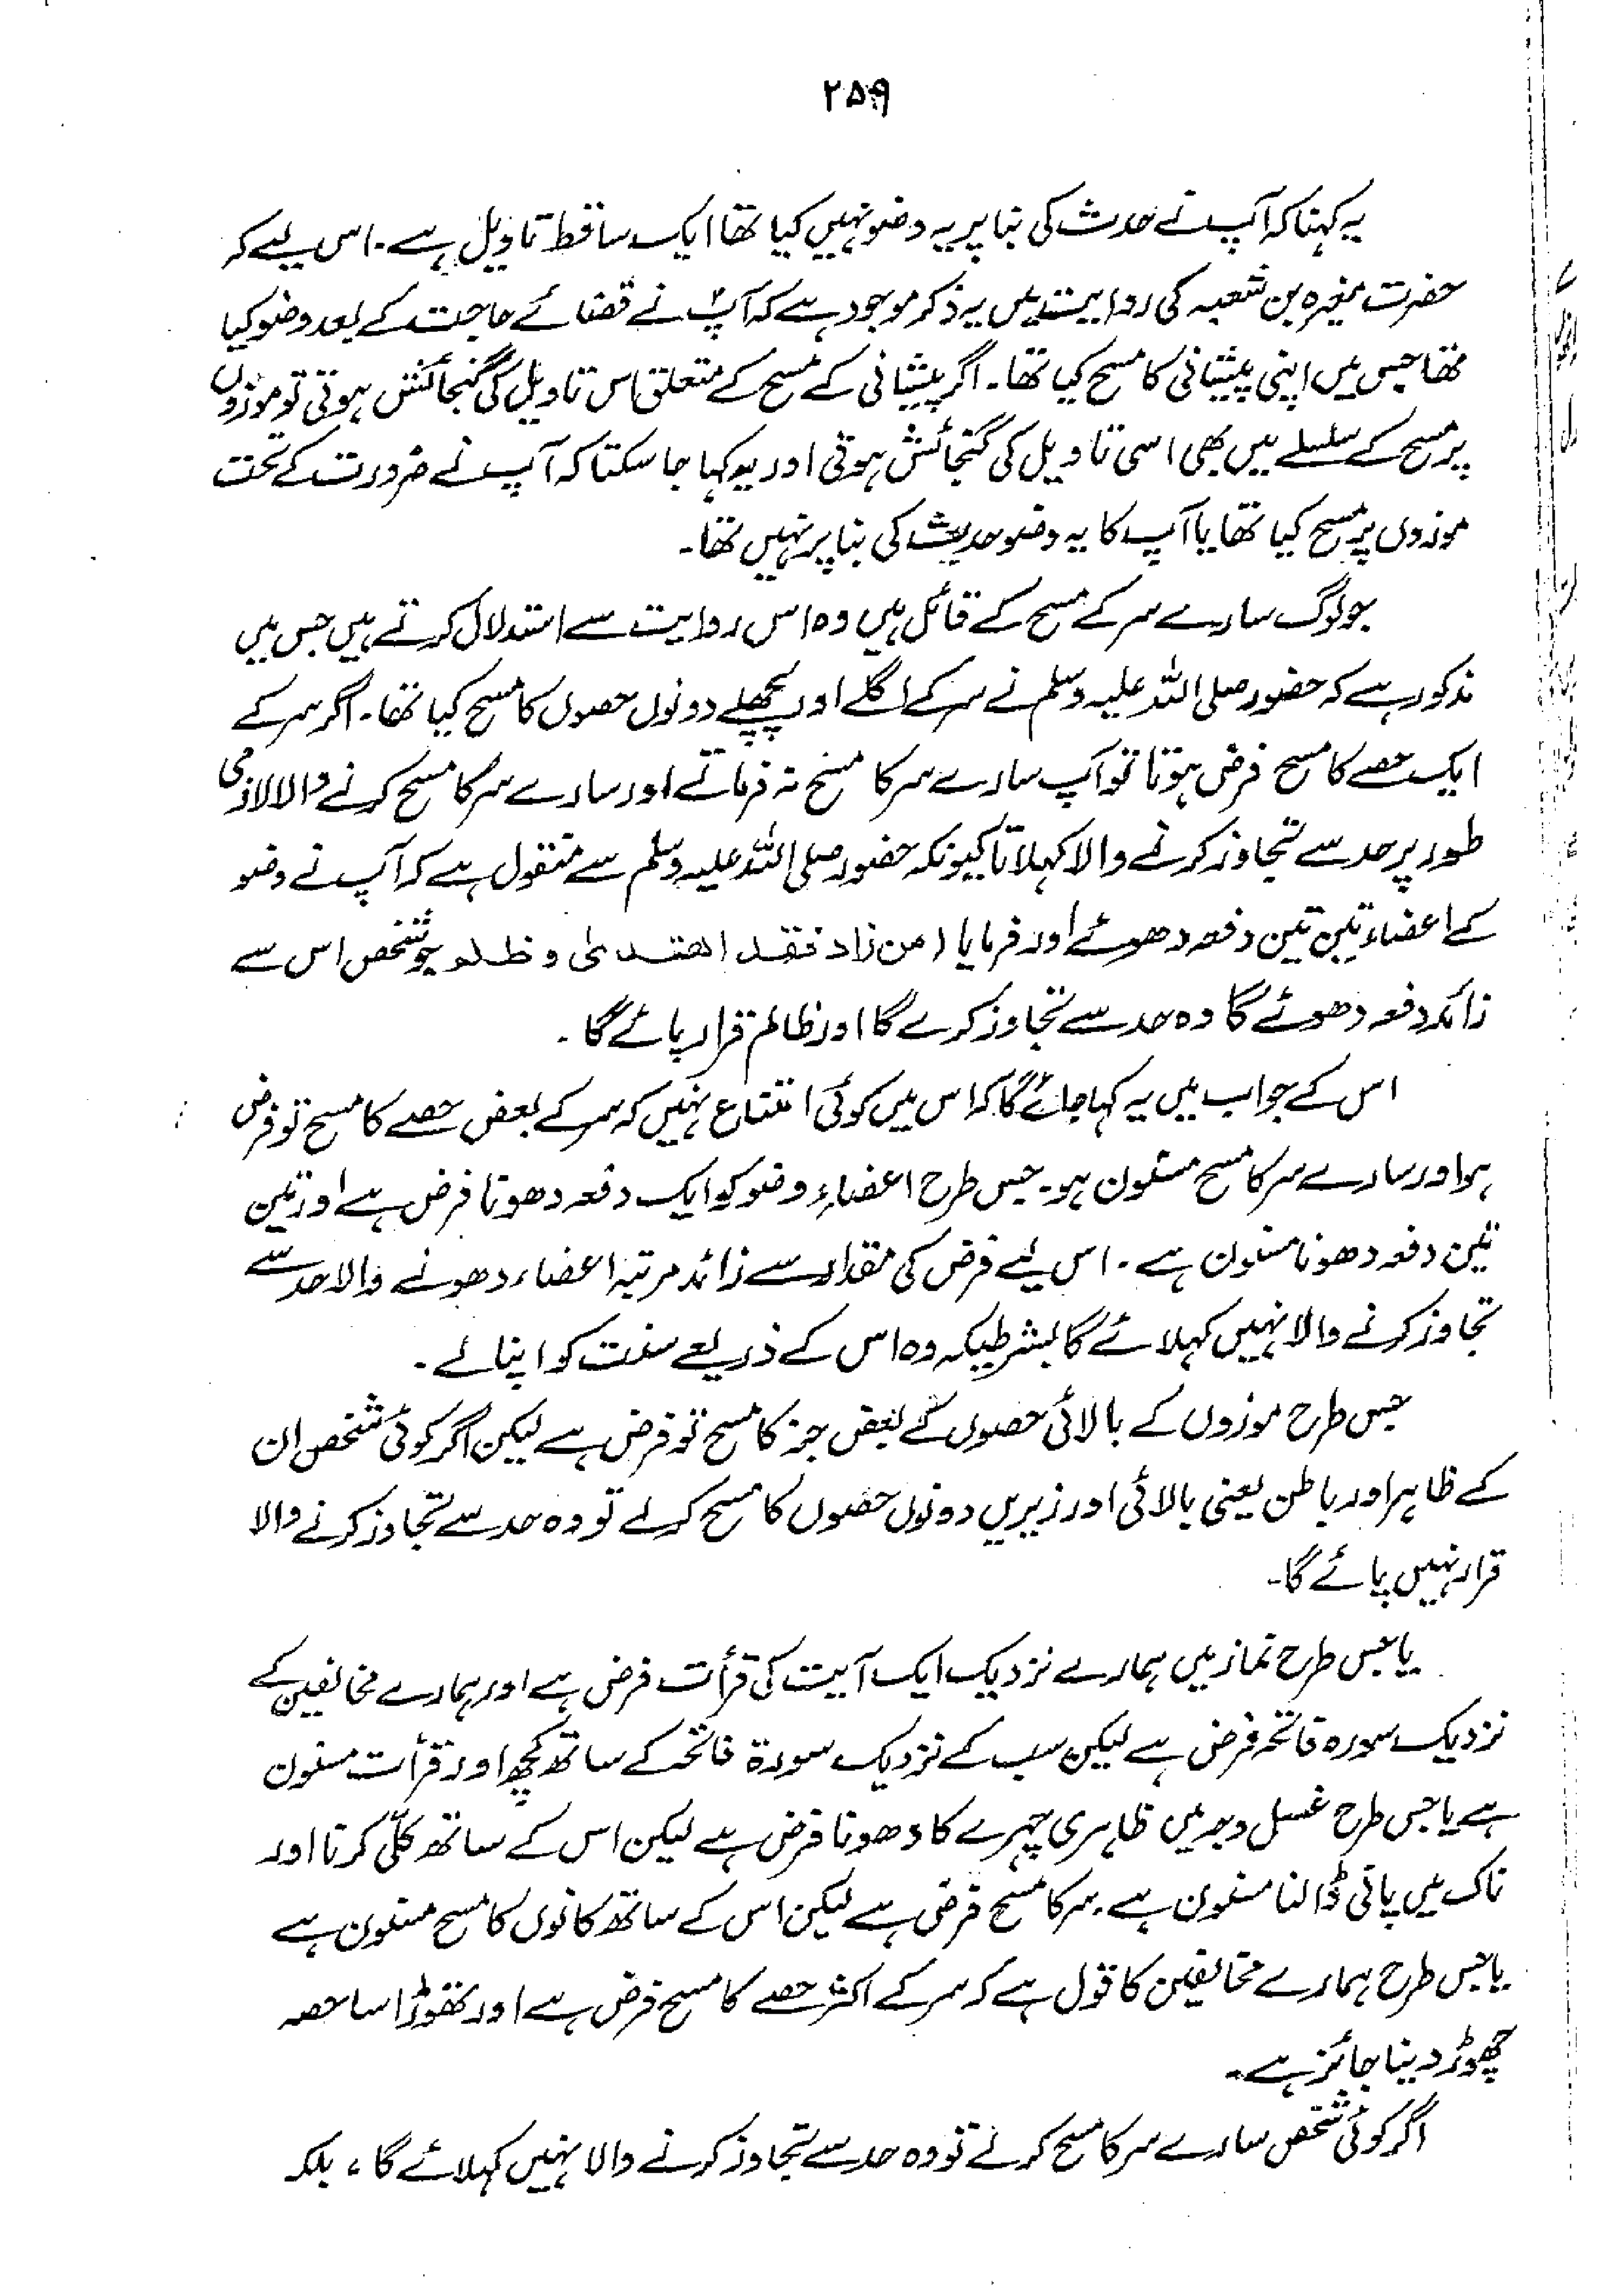 ۲۵۹
یہ کہنا کہ آپ نے حدث کی بنا پر یہ وضو نہیں کیا تھا ایک ساقط تاویل ہے۔ اس لیے کہ
حضرت مغیرہ بن شعبہ کی روایت میں یہ ذکر موجود ہے کہ آپؐ نے قضائے حاجت کے بعد وضو کیا
تھا جس میں اپنی پیشانی کا مسح کیا تھا۔ اگر پیشانی کے مسح کے متعلق اس تاویل کی گنجائش ہوتی تو موزوں
پر مسح کے سلسلے میں بھی اسی تاویل کی گنجائش ہوتی اور یہ کہا جا سکتا کہ آپ نے ضرورت کے تحت
موزوں پر مسح کیا تھا یا آپ کا یہ وضو حدث کی بنا پر نہیں تھا۔
جو لوگ سارے سر کے مسح کے قائل ہیں وہ اس روایت سے استدلال کرتے ہیں جس میں
مذکور ہے کہ حضور صلی اللہ علیہ وسلم نے سر کے اگلے اور پچھلے دونوں حصوں کا مسح کیا تھا۔ اگر سر کے
ایک حصے کا مسح فرض ہوتا تو آپ سارے سر کا مسح نہ فرماتے اور سارے سر کا مسح کرنے والا لازمی
طور پر حد سے تجاوز کرنے والا کہلاتا کیونکہ حضور صلی اللہ علیہ وسلم سے منقول ہے کہ آپ نے وضو
کے اعضاء تین تین دفعہ دھوئے اور فرمایا (من زاد فقد اعتدیٰ و ظلم جو شخص اس سے
زائد دفعہ دھوئے گا وہ حد سے تجاوز کرے گا اور ظالم قرار پائے گا۔
اس کے جواب میں یہ کہا جائے گا کہ اس میں کوئی امتناع نہیں کہ سر کے بعض حصے کا مسح تو فرض
ہو اور سارے سر کا مسح مسنون ہو۔ جس طرح اعضاءِ وضو کو ایک دفعہ دھونا فرض ہے اور تین
تین دفعہ دھونا مسنون ہے۔ اس لیے فرض کی مقدار سے زائد مرتبہ اعضاء دھونے والا حد سے
تجاوز کرنے والا نہیں کہلائے گا بشرطیکہ وہ اس کے ذریعے سنت کو اپنائے۔
جس طرح موزوں کے بالائی حصوں کے بعض جز کا مسح تو فرض ہے لیکن اگر کوئی شخص ان
کے ظاہر اور باطن یعنی بالائی اور زیریں دونوں حصوں کا مسح کرلے تو وہ حد سے تجاوز کرنے والا
قرار نہیں پائے گا۔
یا جس طرح نماز میں ہمارے نزدیک ایک آیت کی قرأت فرض ہے اور ہمارے مخالفین کے
نزدیک سورہ فاتحہ فرض ہے لیکن سب کے نزدیک سورۃ فاتحہ کے ساتھ کچھ اور قرأت مسنون
ہے یا جس طرح غسل وجہ میں ظاہری چہرے کا دھونا فرض ہے لیکن اس کے ساتھ کلّی کرنا اور
ناک میں پانی ڈالنا مسنون ہے۔ سر کا مسح فرض ہے لیکن اس کے ساتھ کانوں کا مسح مسنون ہے
یا جس طرح ہمارے مخالفین کا قول ہے کہ سر کے اکثر حصے کا مسح فرض ہے اور تھوڑا سا حصہ
چھوڑ دینا جائز ہے۔
اگر کوئی شخص سارے سر کا مسح کرلے تو وہ حد سے تجاوز کرنے والا نہیں کہلائے گا، بلکہ